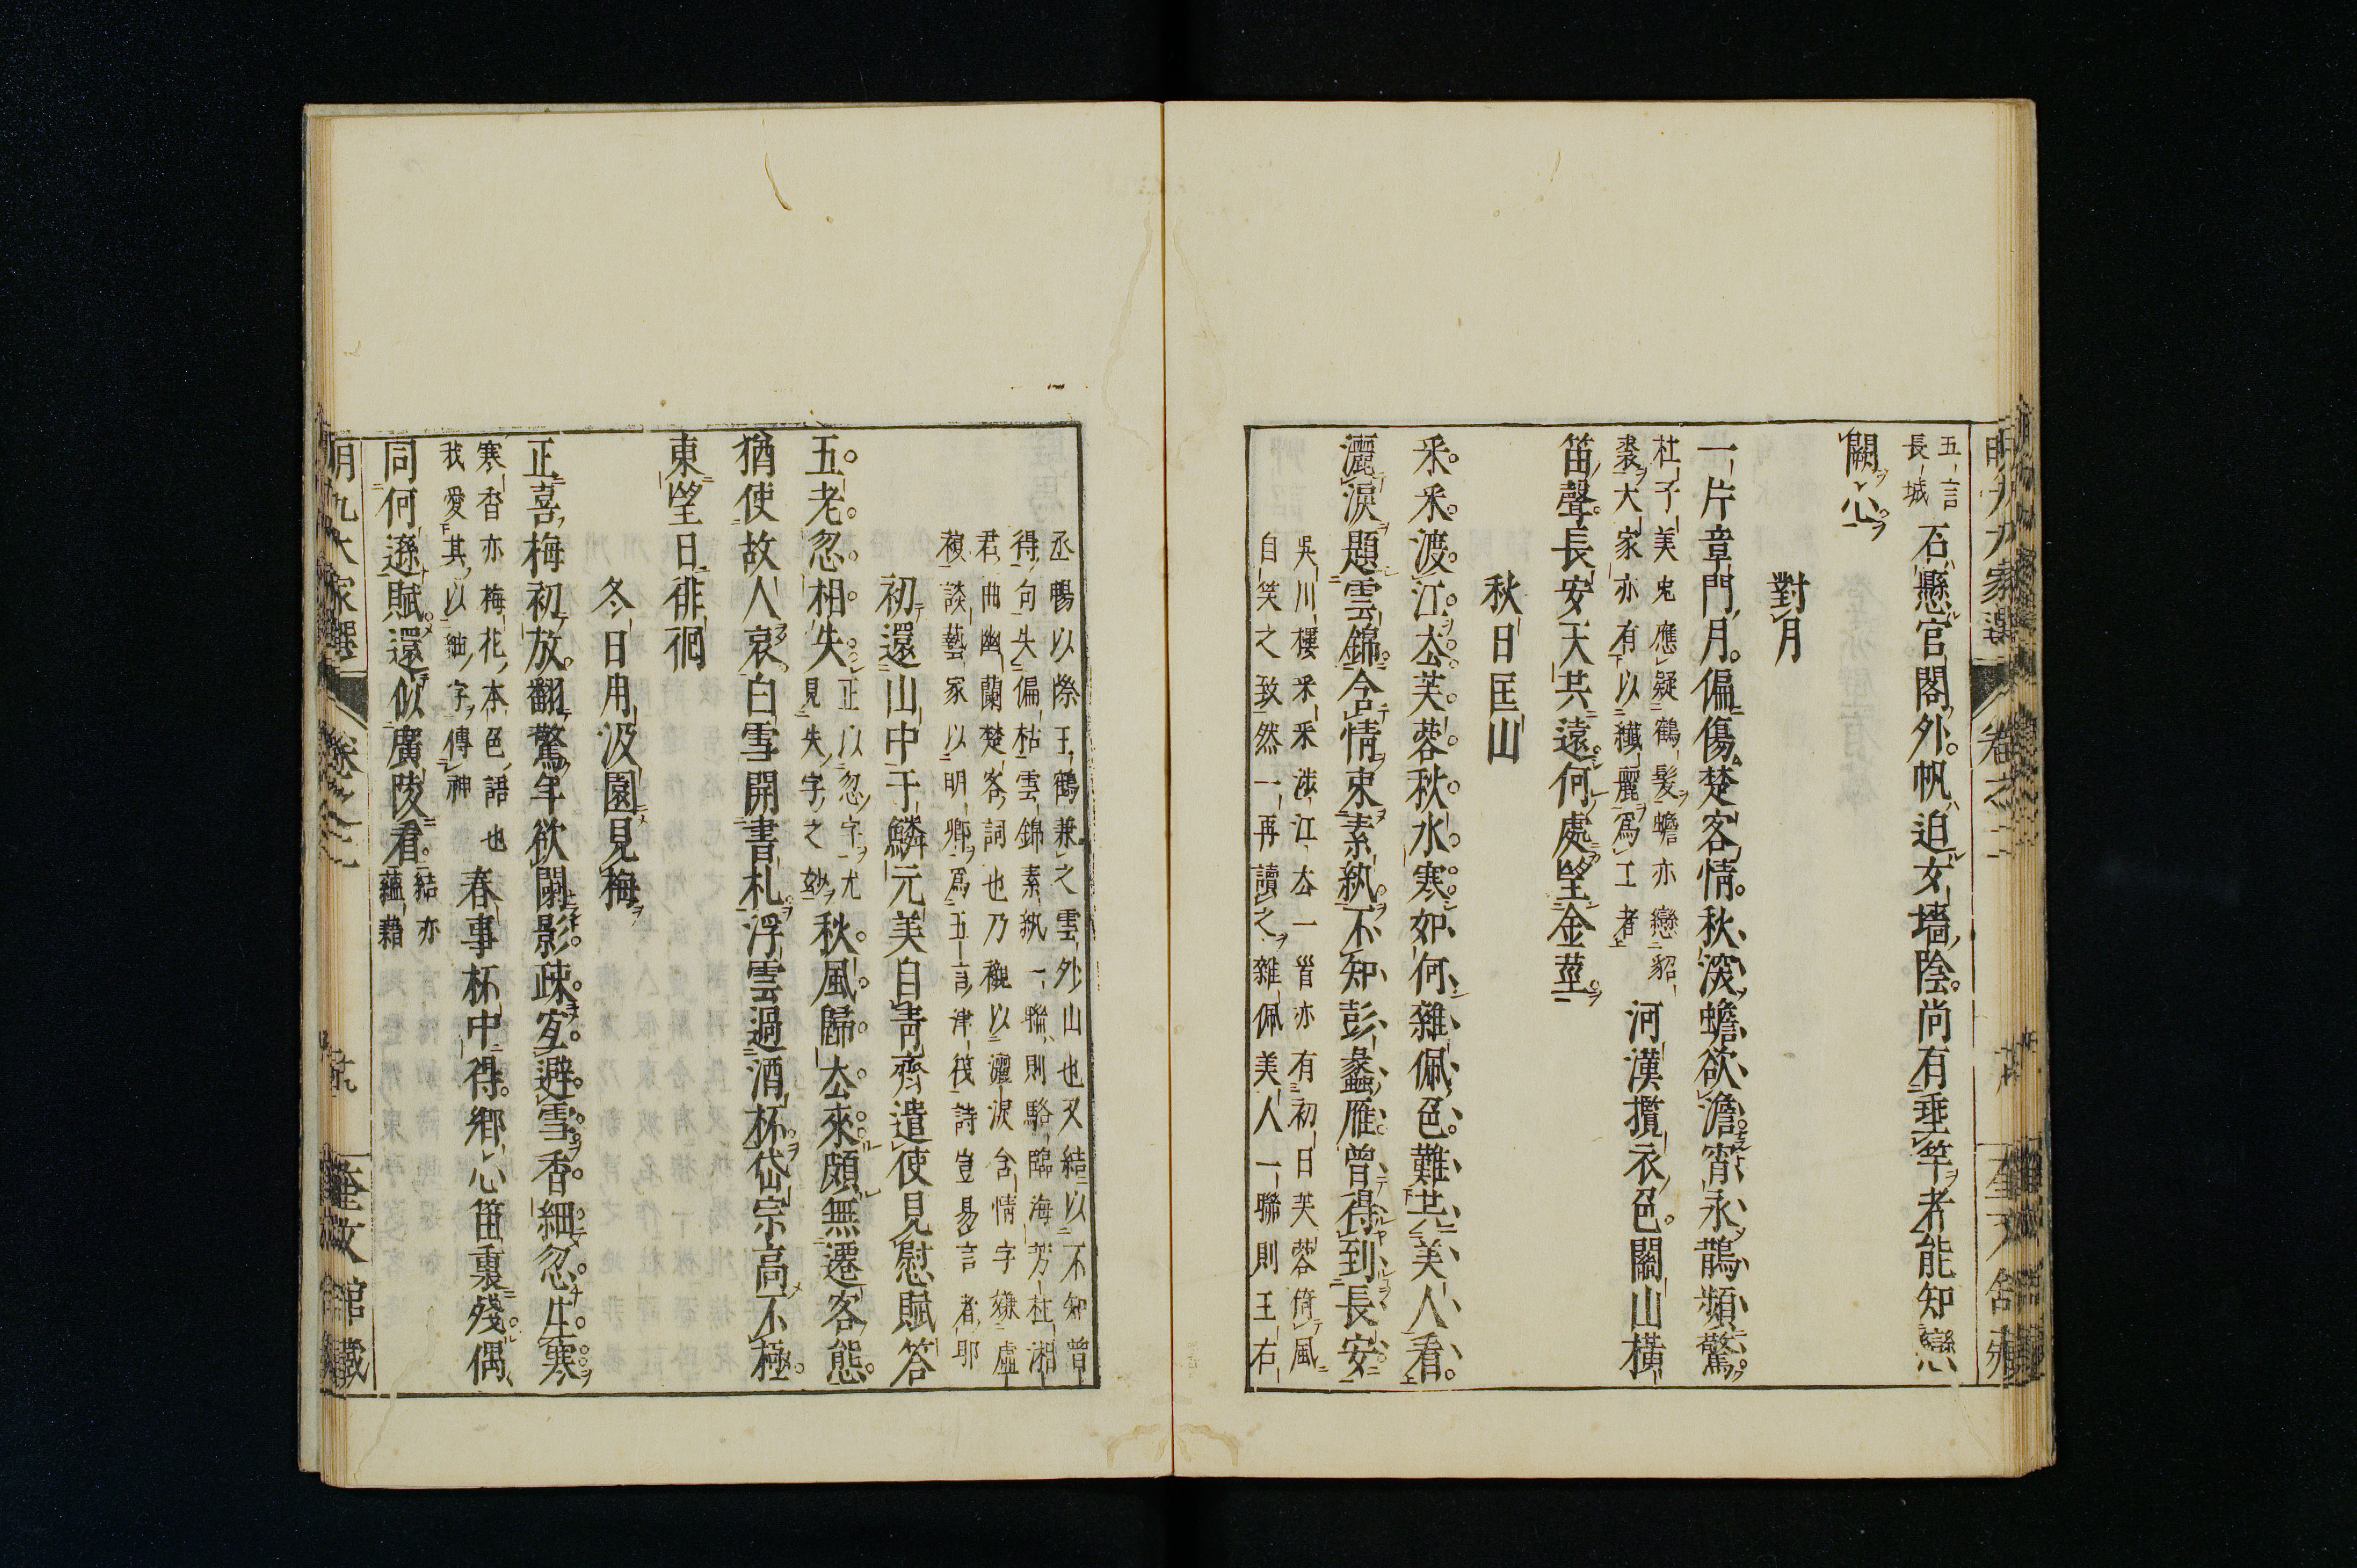 五言
長城
石懸官閣外帆迫女墻陰尚有垂竿者能知戀
闕心
對月
一片章門月偏傷楚客情秋深蟾欲澹宵永鵲頻驚
杜子美兎應疑鶴髪蟾亦戀貂
裘大家亦有以纎麗爲工者
河漢攬衣色關山橫
笛聲長安天共遠何處望金莖
秋日匡山
釆釆渡江去芙蓉秋水寒如何雜佩色難共美人看
吳川樓釆釆涉江去一首亦有初日芙蓉倚風
自笑之致然一再讀之雜佩美人一聯則王右
灑淚題雲錦含情束素紈不知彭蠡雁曾得到長安
丞暢以際王鶴兼之雲外山也又結以不知曾
得句失偏枯雲錦素紈一聯則駱臨海芳杜湘
君曲幽蘭楚客詞也乃襯以灑淚含情字嫌虛
複談藝家以明卿爲五言津筏詩豈易言者耶
初還山中于鱗元美自青齊遣使見慰賦答
五老忽相失
正以忽字尤
見失字之妙
秋風歸去來頗無遷客態
猶使故人哀白雪開書札浮雲過酒杯岱宗高不極
東望日徘徊
冬日用汲園見梅
正喜梅初放翻驚年欲闌影疎宐避雪香細忽生寒
寒香亦梅花本色語也
我愛其以細字傳神
春事杯中得鄉心笛裏殘偶
同何遜賦還似廣陵看
結亦
蘊藉
明九大家選
卷之二
奎文館藏